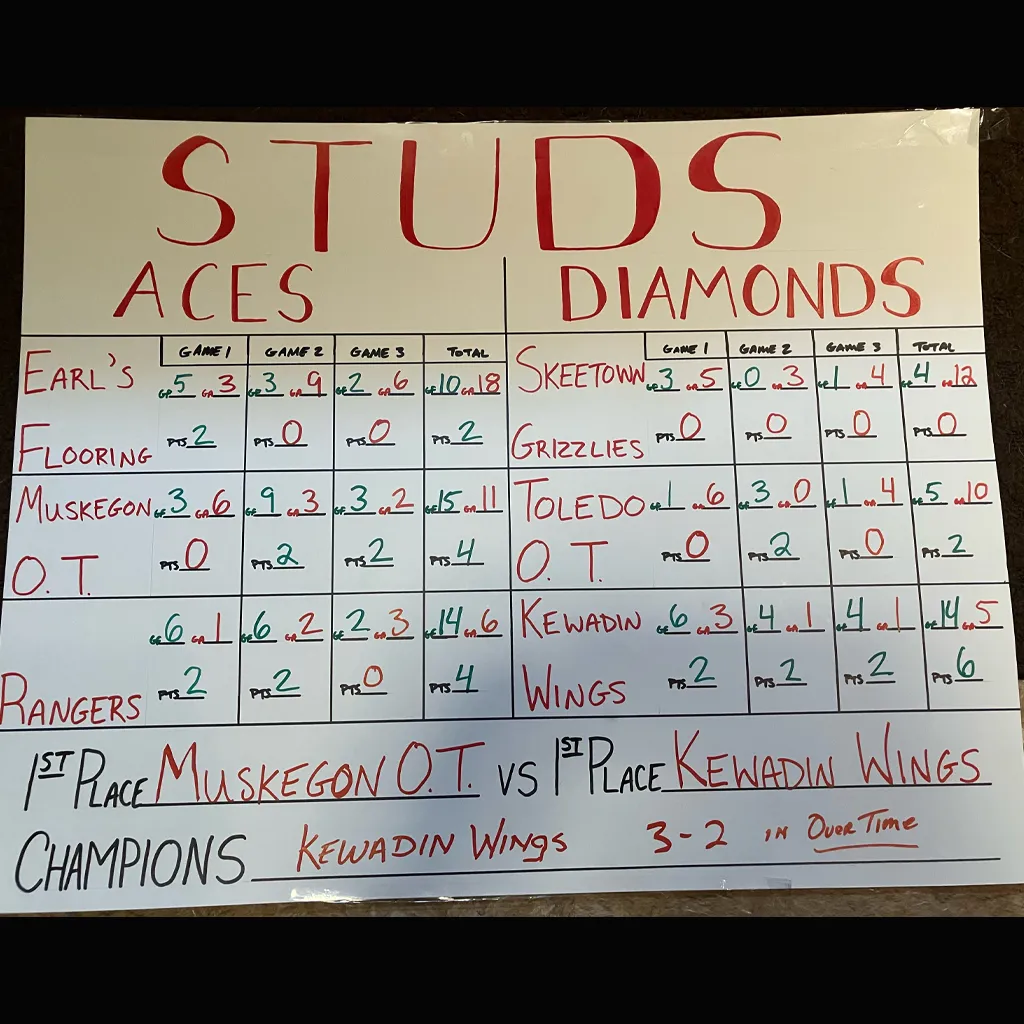 STUDS
ACES DIAMONDS
GAME 1 GAME 2 GAME 3 TOTAL GAME 1 GAME 2 GAME 3 TOTAL
EARL'S GF 5 GA 3 GF 3 GA 9 GF 2 GA 6 GF 10 GA 18 SKEETOWN GF 3 GA 5 GF 0 GA 3 GF 1 GA 4 GF 4 GA 12
FLOORING PTS 2 PTS 0 PTS 0 PTS 2 GRIZZLIES PTS 0 PTS 0 PTS 0 PTS 0
MUSKEGON GF 3 GA 6 GF 9 GA 3 GF 3 GA 2 GF 15 GA 11 TOLEDO GF 1 GA 6 GF 3 GA 0 GF 1 GA 4 GF 5 GA 10
O.T. PTS 0 PTS 2 PTS 2 PTS 4 O.T. PTS 0 PTS 2 PTS 0 PTS 2
GF 6 GA 1 GF 6 GA 2 GF 2 GA 3 GF 14 GA 6 KEWADIN GF 6 GA 3 GF 4 GA 1 GF 4 GA 1 GF 14 GA 5
RANGERS PTS 2 PTS 2 PTS 0 PTS 4 WINGS PTS 2 PTS 2 PTS 2 PTS 6
1ST PLACE MUSKEGON O.T. VS 1ST PLACE KEWADIN WINGS
CHAMPIONS KEWADIN WINGS 3-2 IN OVER TIME